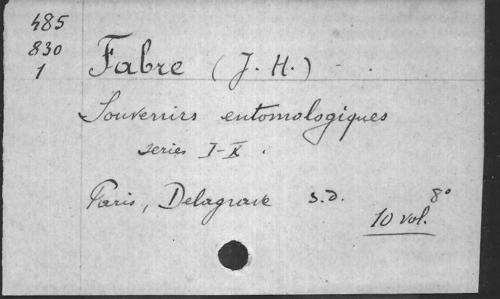 485
830
1
Fabre (J. H.)
Souvenirs entomologiques
series I-X
Paris, Delagrave s.d. 8°
10 vol.